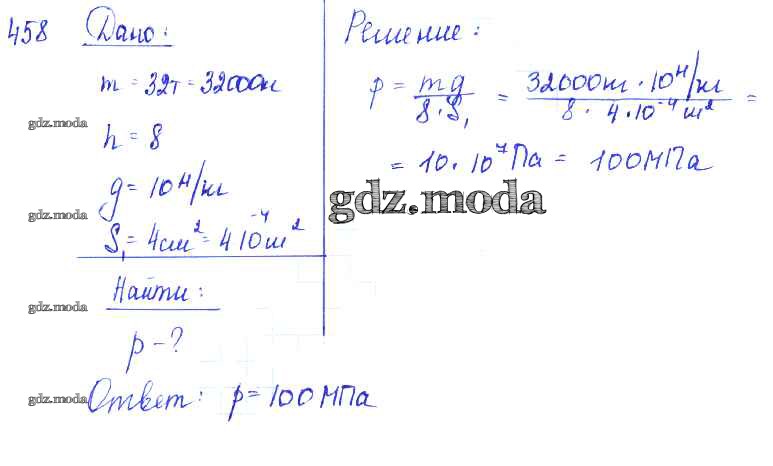 458 Дано:
m = 32т = 32000кг
n = 8
g = 10 Н/кг
S₁ = 4см² = 4 10⁻⁴ м²
Найти:
p - ?
Решение:
p = mg / 8·S₁ = 32000кг · 10 Н/кг / 8 · 4·10⁻⁴ м² =
= 10·10⁷ Па = 100МПа
Ответ: p = 100МПа
gdz.moda
gdz.moda
gdz.moda
gdz.moda
gdz.moda